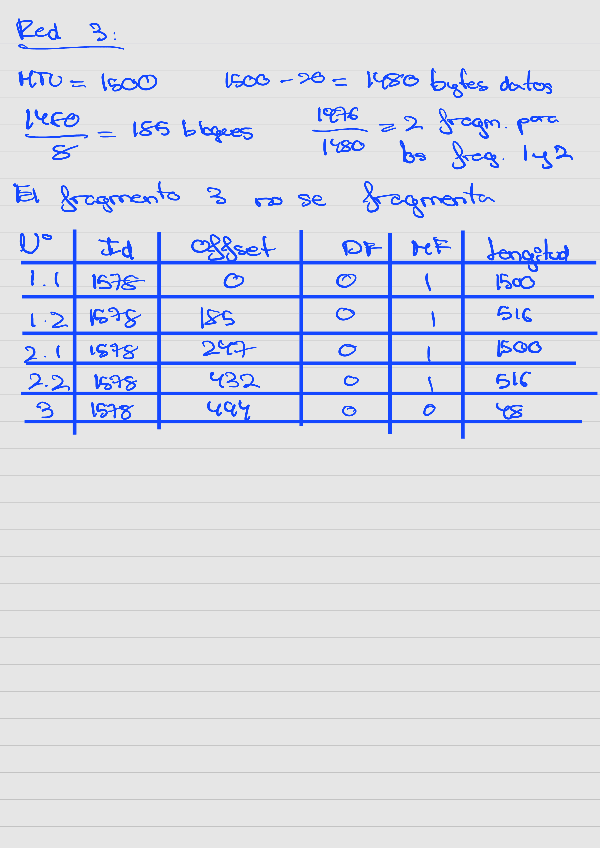 Red 3:
MTU = 1500 1500 - 20 = 1480 bytes datos
1480/8 = 185 bloques 1976/1480 = 2 fragm. para
los frag. 1 y 2
El fragmento 3 no se fragmenta
Nº Id Offset DF MF Longitud
1.1 1578 0 0 1 1500
1.2 1578 185 0 1 516
2.1 1578 247 0 1 1500
2.2 1578 432 0 1 516
3 1578 494 0 0 48